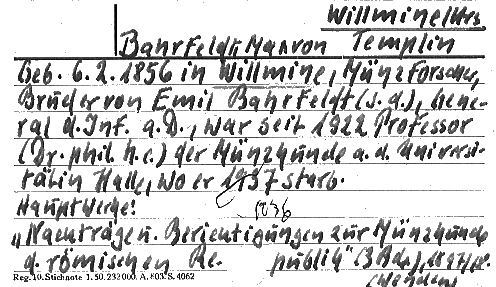 Willmine/Krs.
Templin
Bahrfeldt, Max von
Geb. 6.2.1856 in Willmine, Münzforscher,
Bruder von Emil Bahrfeldt (s.d.), Gene-
ral d. Inf. a.D., war seit 1922 Professor
(Dr. phil. h.c.) der Münzkunde a.d. Universi-
tät in Halle, wo er 1937 starb.
1936
Hauptwerke:
"Nachträge u. Berichtigungen zur Münzkunde
d. römischen Re- publik" (3 Bde),
Reg. 10. Stichnote 1. 50. 232000. A. 803. S. 4062